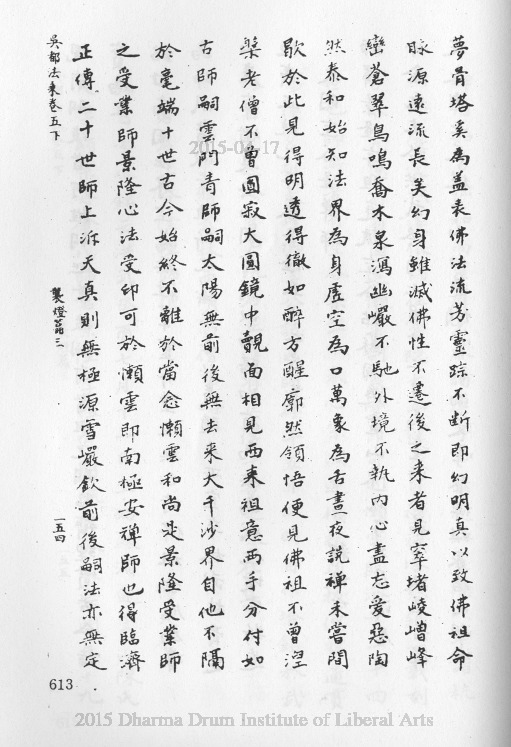 夢骨塔奚為蓋表佛法流芳靈踪不斷即幻明真以致佛祖命
脉源遠流長矣幻身雖滅佛性不遷後之来者見窣堵崚嶒峰
巒蒼翠鳥鳴喬木泉瀉幽巖不馳外境不執內心盡忘愛惡陶
然泰和始知法界為身虛空為口萬象為舌晝夜說禅未嘗間
歇於此見得明透得徹如醉方醒廓然領悟便見佛祖不曾涅
槃老僧不曾圓寂大圓鏡中覿面相見西来祖意兩手分付如
古師嗣雲門青師嗣太陽無前後無去来大千沙界自他不隔
於毫端十世古今始終不離於當念懶雲和尚是景隆受業師
之受業師景隆心法受印可於懶雲即南極安禅師也得臨濟
正傳二十世師上泝天真則無極源雪巖欽前後嗣法亦無定
吳都法乘卷五下
襲燈篇三
一五四
613
2015-04-17
2015 Dharma Drum Institute of Liberal Arts